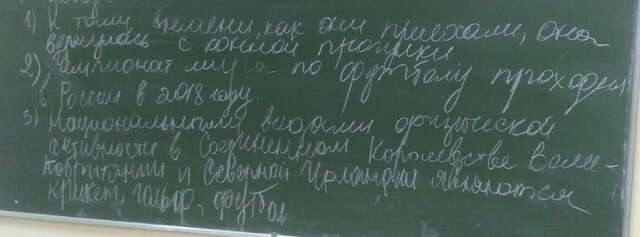 1) К тому времени, как они приехали, она
вернулась с конной прогулки
2) Чемпионат мира по футболу проходил
в России в 2018 году.
3) Национальными видами физической
активности в Соединенном Королевстве Вели-
кобритании и Северной Ирландии являются
крикет, гольф, футбол